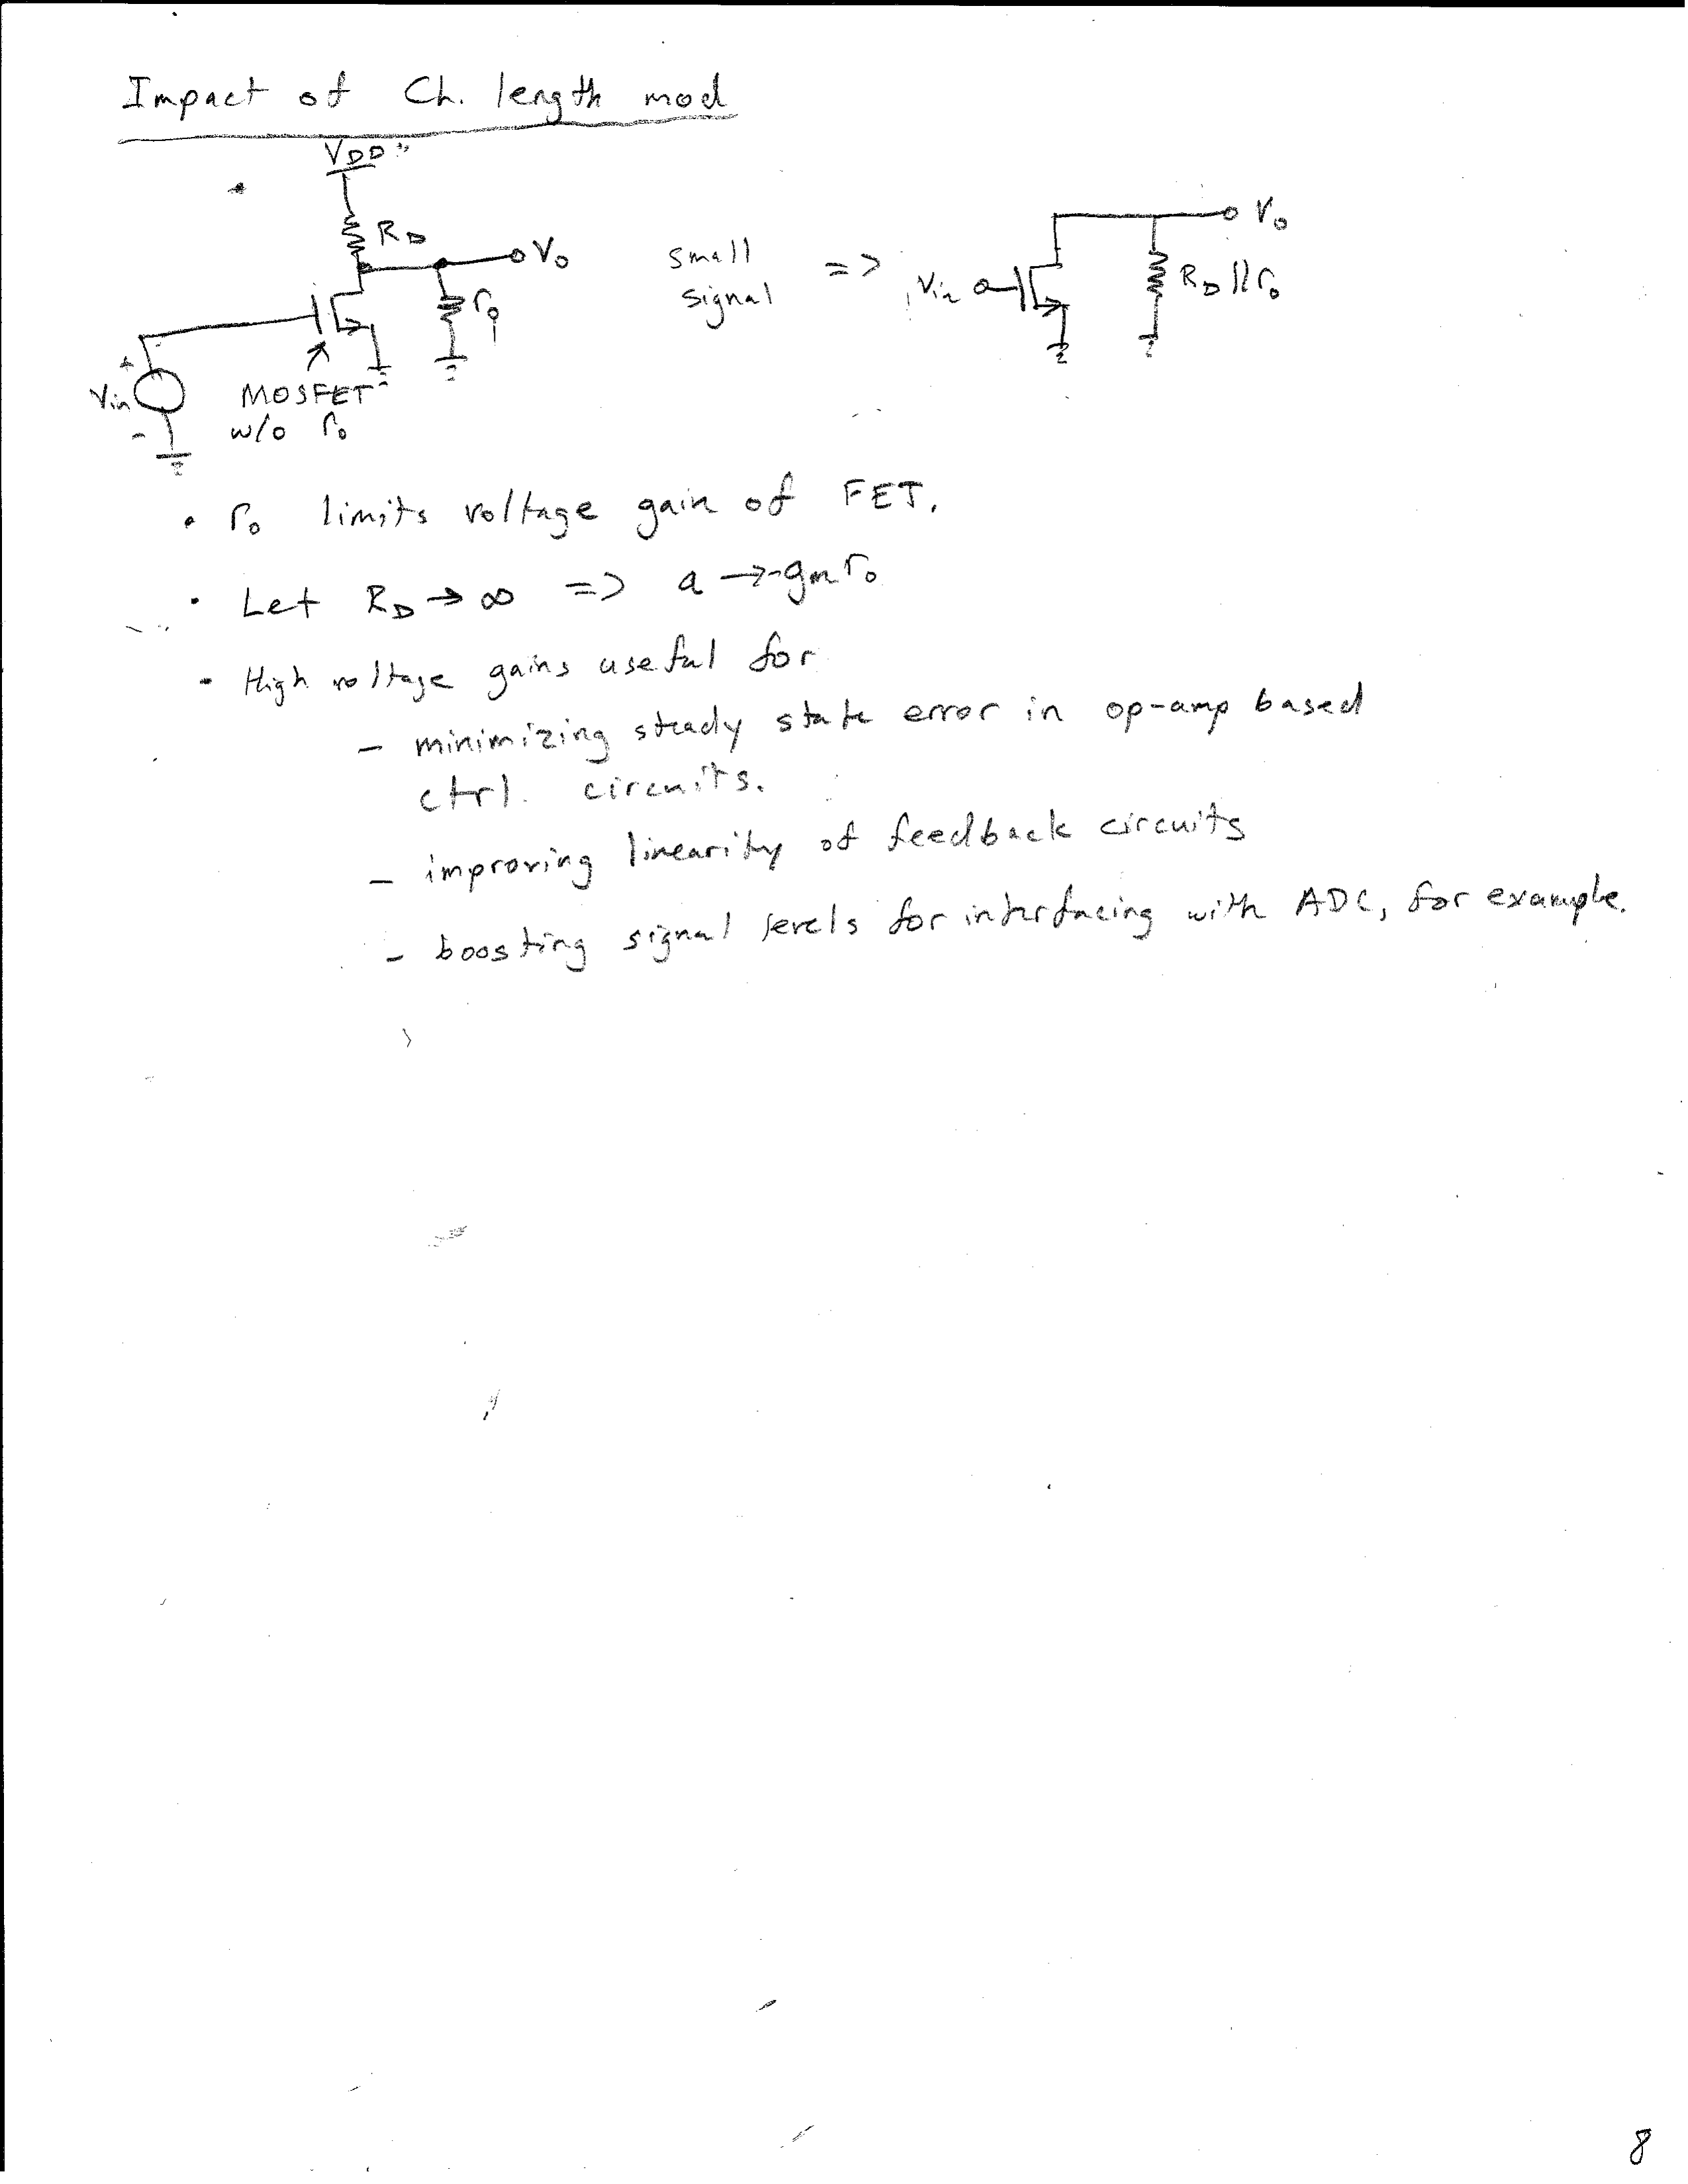 Impact of Ch. length mod
VDD
RD
Vo
ro
Vin
+
-
MOSFET
w/o ro
small
signal
=>
Vin
Vo
RD||ro
• ro limits voltage gain of FET.
• Let RD → ∞ => a → -gmro
• High voltage gains useful for
- minimizing steady state error in op-amp based
ctrl. circuits.
- improving linearity of feedback circuits
- boosting signal levels for interfacing with ADC, for example.
8